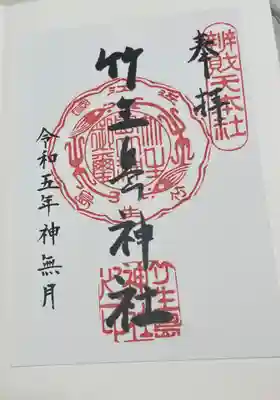 辨財天本社
奉拝
竹生島神社
竹生島
神社
之印
令和五年神無月